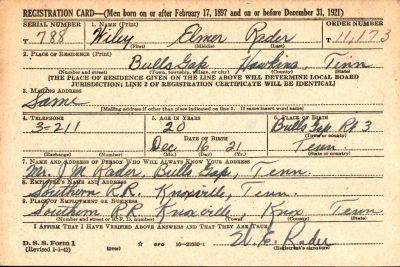 REGISTRATION CARD—(Men born on or after February 17, 1897 and on or before December 31, 1921)
SERIAL NUMBER 1. NAME (Print) ORDER NUMBER
T 788 Wiley Elmer Rader T 11,173
(First) (Middle) (Last)
2. PLACE OF RESIDENCE (Print)
Bulls Gap Hawkins, Tenn
(Number and street) (Town, township, village, or city) (County) (State)
[THE PLACE OF RESIDENCE GIVEN ON THE LINE ABOVE WILL DETERMINE LOCAL BOARD
JURISDICTION; LINE 2 OF REGISTRATION CERTIFICATE WILL BE IDENTICAL]
3. MAILING ADDRESS
Same
[Mailing address if other than place indicated on line 2. If same insert word same]
4. TELEPHONE 5. AGE IN YEARS 6. PLACE OF BIRTH
3-211 20 Bulls Gap Rt 3
DATE OF BIRTH (Town or county)
Dec 16 21 Tenn
(Exchange) (Number) (Mo.) (Day) (Yr.) (State or country)
7. NAME AND ADDRESS OF PERSON WHO WILL ALWAYS KNOW YOUR ADDRESS
Mr. J M Rader, Bulls Gap, Tenn.
8. EMPLOYER'S NAME AND ADDRESS
Southern R.R. Knoxville, Tenn.
9. PLACE OF EMPLOYMENT OR BUSINESS
Southern R.R. Knoxville, Knox Tenn
(Number and street or R. F. D. number) (Town) (County) (State)
I AFFIRM THAT I HAVE VERIFIED ABOVE ANSWERS AND THAT THEY ARE TRUE.
D. S. S. Form 1
(Revised 1-1-42) (over) GPO 16-21630-1
W. E. Rader
(Registrant's signature)